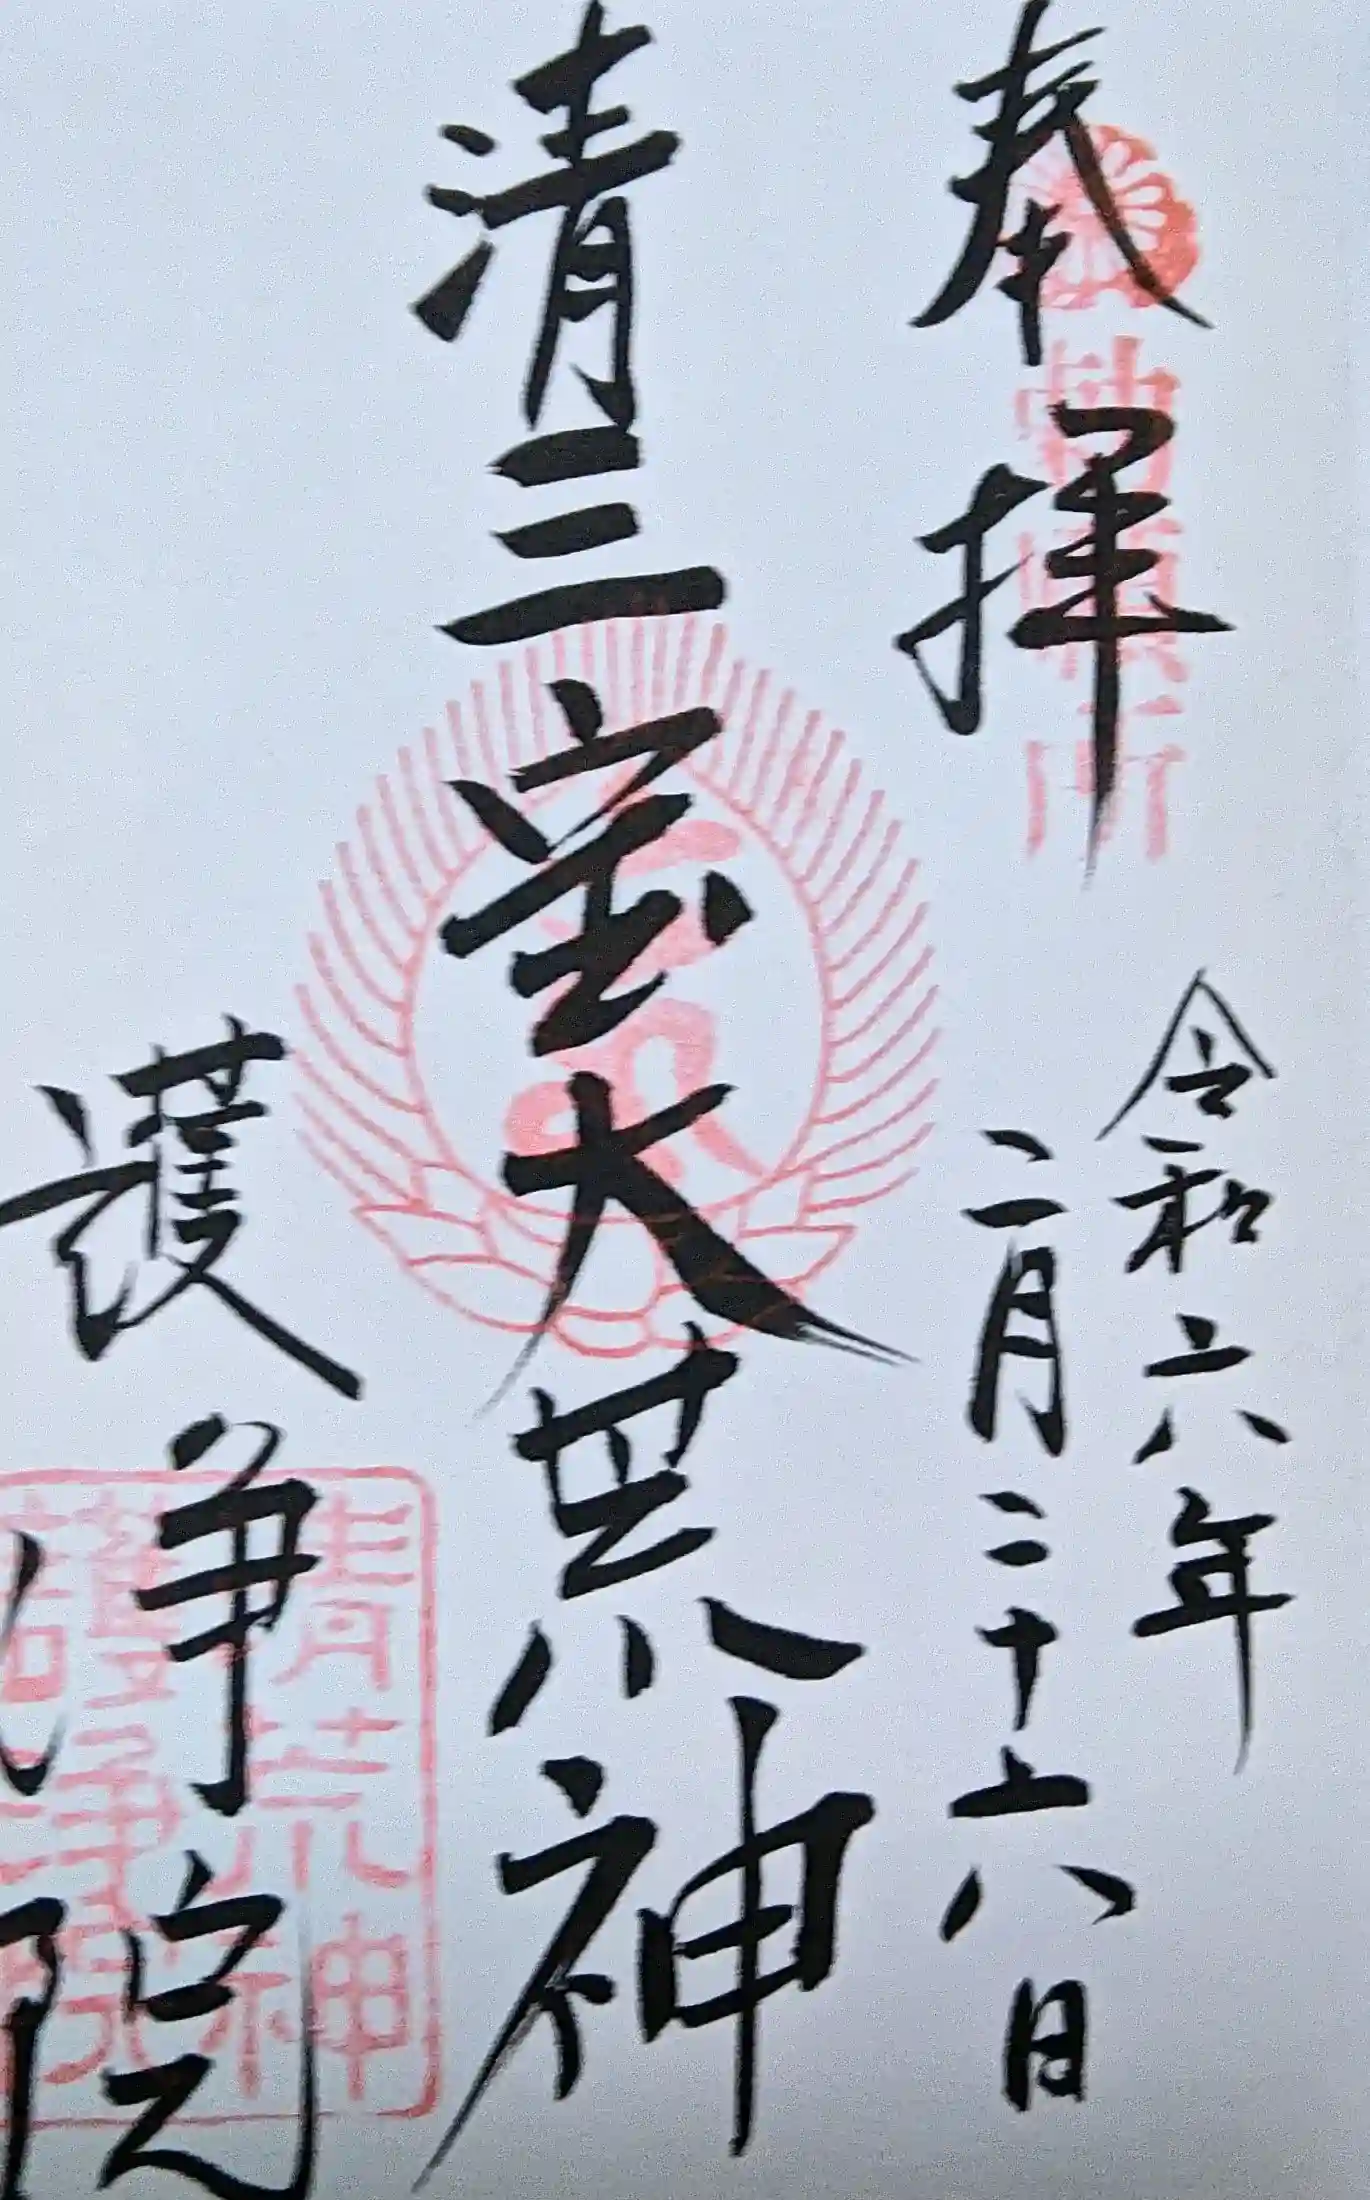 奉拝
勅願所
令和六年
二月二十六日
清三宝大荒神
護浄院
清荒神
護浄院